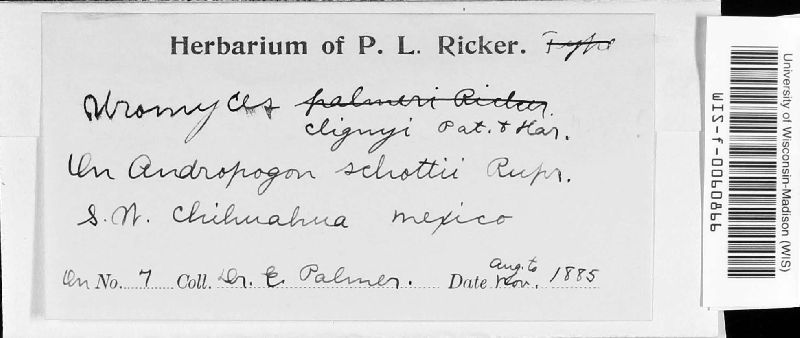 Herbarium of P. L. Ricker. Type
Uromyces palmeri Ricker.
clignyi Pat. & Har.
On Andropogon schottii Rupr.
S. W. Chihuahua mexico
On No. 7 Coll. Dr. E. Palmer. Date Aug. to Nov. 1885
University of Wisconsin-Madison (WIS)
WIS-f-0060866